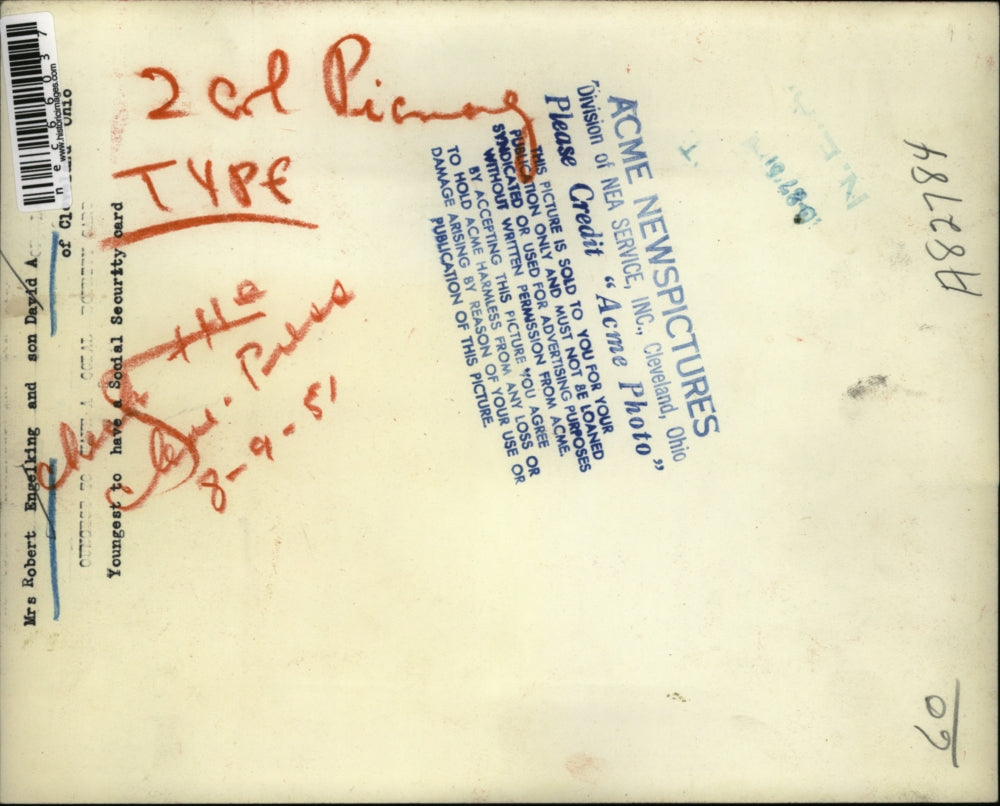 2 col
TYPE
Cleve. Press
8-9-51
Mrs Robert Engelking and son David A
of Cle Ohio
Youngest to have a Social Security card
necc66037
www.historicimages.com
ACME NEWSPICTURES
Division of NEA SERVICE, INC., Cleveland, Ohio
Please Credit "Acme Photo"
THIS PICTURE IS SOLD TO YOU FOR YOUR
PUBLICATION ONLY AND MUST NOT BE LOANED
SYNDICATED OR USED FOR ADVERTISING PURPOSES
WITHOUT WRITTEN PERMISSION FROM ACME.
BY ACCEPTING THIS PICTURE YOU AGREE
TO HOLD ACME HARMLESS FROM ANY LOSS OR
DAMAGE ARISING BY REASON OF YOUR USE OR
PUBLICATION OF THIS PICTURE.
N. E. A.
60